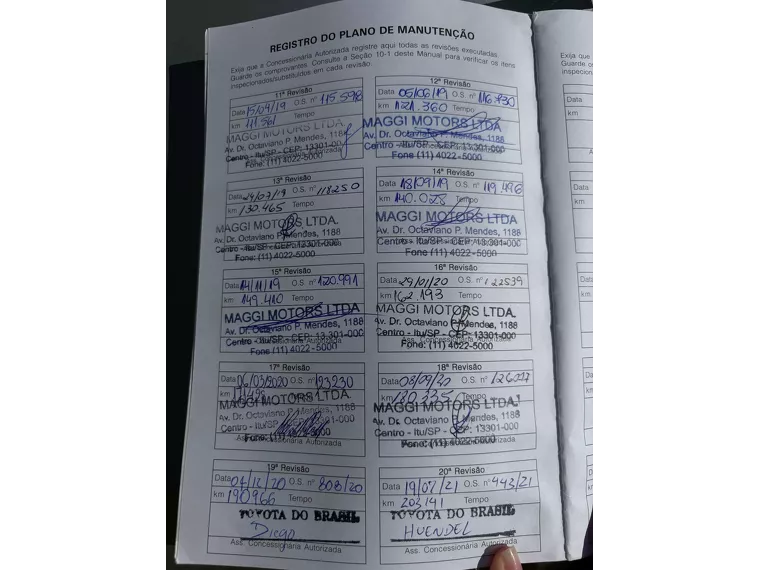 REGISTRO DO PLANO DE MANUTENÇÃO
Exija que a Concessionária Autorizada registre aqui todas as revisões executadas.
Guarde os comprovantes. Consulte a Seção 10-1 deste Manual para verificar os itens
inspecionados/substituídos em cada revisão.
11ª Revisão
Data 15/04/19 O.S. nº 115.598
km 111.561 Tempo
MAGGI MOTORS LTDA.
Av. Dr. Octaviano P. Mendes, 1188
Ass. Concessionária Autorizada
Centro - Itu/SP - CEP: 13301-000
Fone: (11) 4022-5000
12ª Revisão
Data 05/06/19 O.S. nº 116.730
km 121.360 Tempo
MAGGI MOTORS LTDA
Av. Dr. Octaviano P. Mendes, 1188
Centro - Itu/SP - CEP: 13.301-000
Fone (11) 4022-5000
13ª Revisão
Data 24/07/19 O.S. nº 118250
km 130.465 Tempo
MAGGI MOTORS LTDA.
Av. Dr. Octaviano P. Mendes, 1188
Centro - Itu/SP - CEP: 13301-000
Fone: (11) 4022-5000
14ª Revisão
Data 18/09/19 O.S. nº 119.496
km 140.028 Tempo
MAGGI MOTORS LTDA
Av. Dr. Octaviano P. Mendes, 1188
Centro - Itu/SP - CEP: 13.301-000
Fone (11) 4022-5000
15ª Revisão
Data 14/11/19 O.S. nº 120.991
km 149.410 Tempo
MAGGI MOTORS LTDA
Av. Dr. Octaviano P. Mendes, 1188
Centro - Itu/SP - CEP: 13.301-000
Fone (11) 4022-5000
16ª Revisão
Data 29/01/20 O.S. nº 122539
km 162.193 Tempo
MAGGI MOTORS LTDA.
Av. Dr. Octaviano P. Mendes, 1188
Centro - Itu/SP - CEP: 13301-000
Fone: (11) 4022-5000
17ª Revisão
Data 06/03/2020 O.S. nº 123230
km Tempo
MAGGI MOTORS LTDA.
Av. Dr. Octaviano P. Mendes, 1188
Centro - Itu/SP - CEP: 13301-000
Fone: (11) 4022-5000
Ass. Concessionária Autorizada
18ª Revisão
Data 03/09/20 O.S. nº
km 180.335 Tempo
MAGGI MOTORS LTDA.
Av. Dr. Octaviano P. Mendes, 1188
Centro - Itu/SP - CEP: 13301-000
Fone: (11) 4022-5000
19ª Revisão
Data 04/12/20 O.S. nº 808/20
km 190966 Tempo
TOYOTA DO BRASIL
Diego
Ass. Concessionária Autorizada
20ª Revisão
Data 19/07/21 O.S. nº 443/21
km 203141 Tempo
TOYOTA DO BRASIL
HUENDEL
Ass. Concessionária Autorizada
Exija que a
Guarde os
inspecionad
Data
km
Data
km
Data
km
Data
km
Data
km